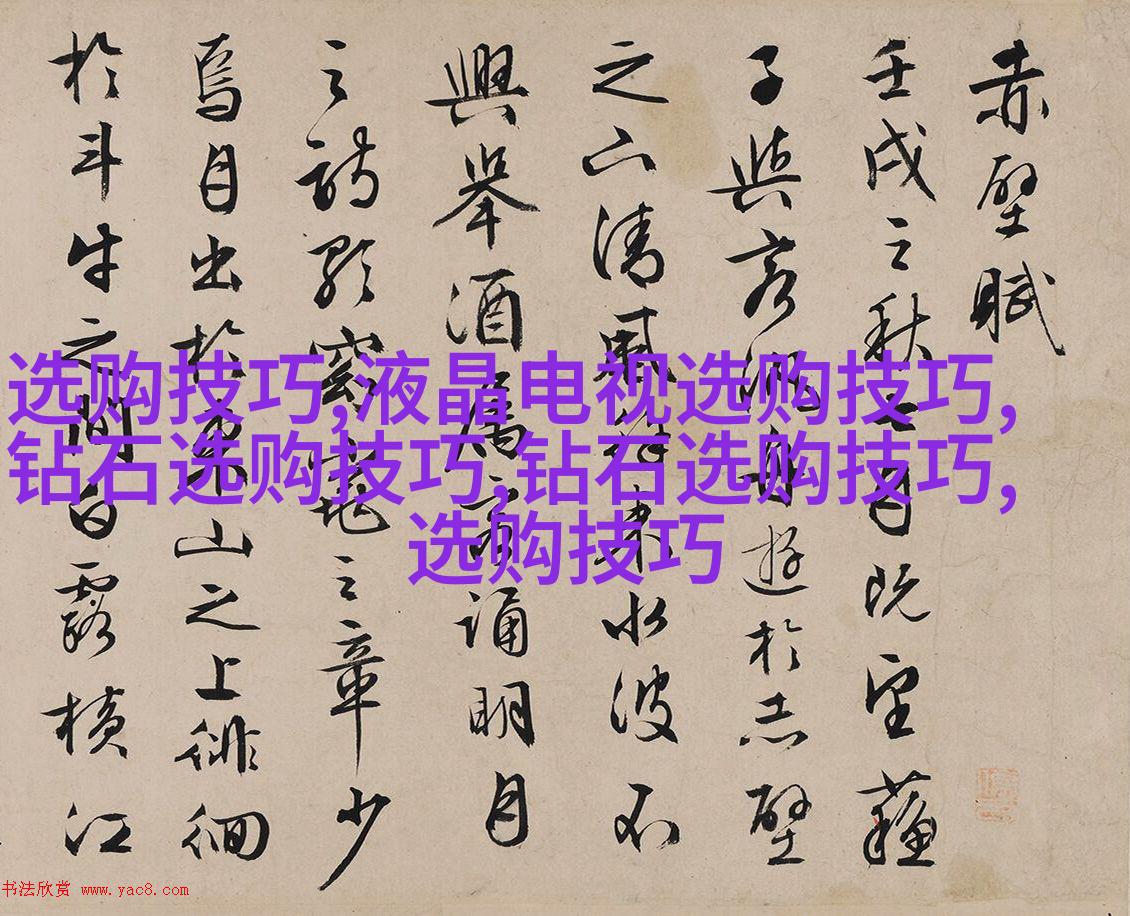 赤壁賦
壬戌之秋七月既望蘇
子與客泛舟遊於赤壁
之下清風徐來水波不
興舉酒屬客誦明月
之詩歌窈窕之章少
焉月出於東山之上徘徊
於斗牛之間白露橫江
选购技巧,液晶电视选购技巧,
钻石选购技巧,钻石选购技巧,
选购技巧
书法欣赏 www.yac8.com